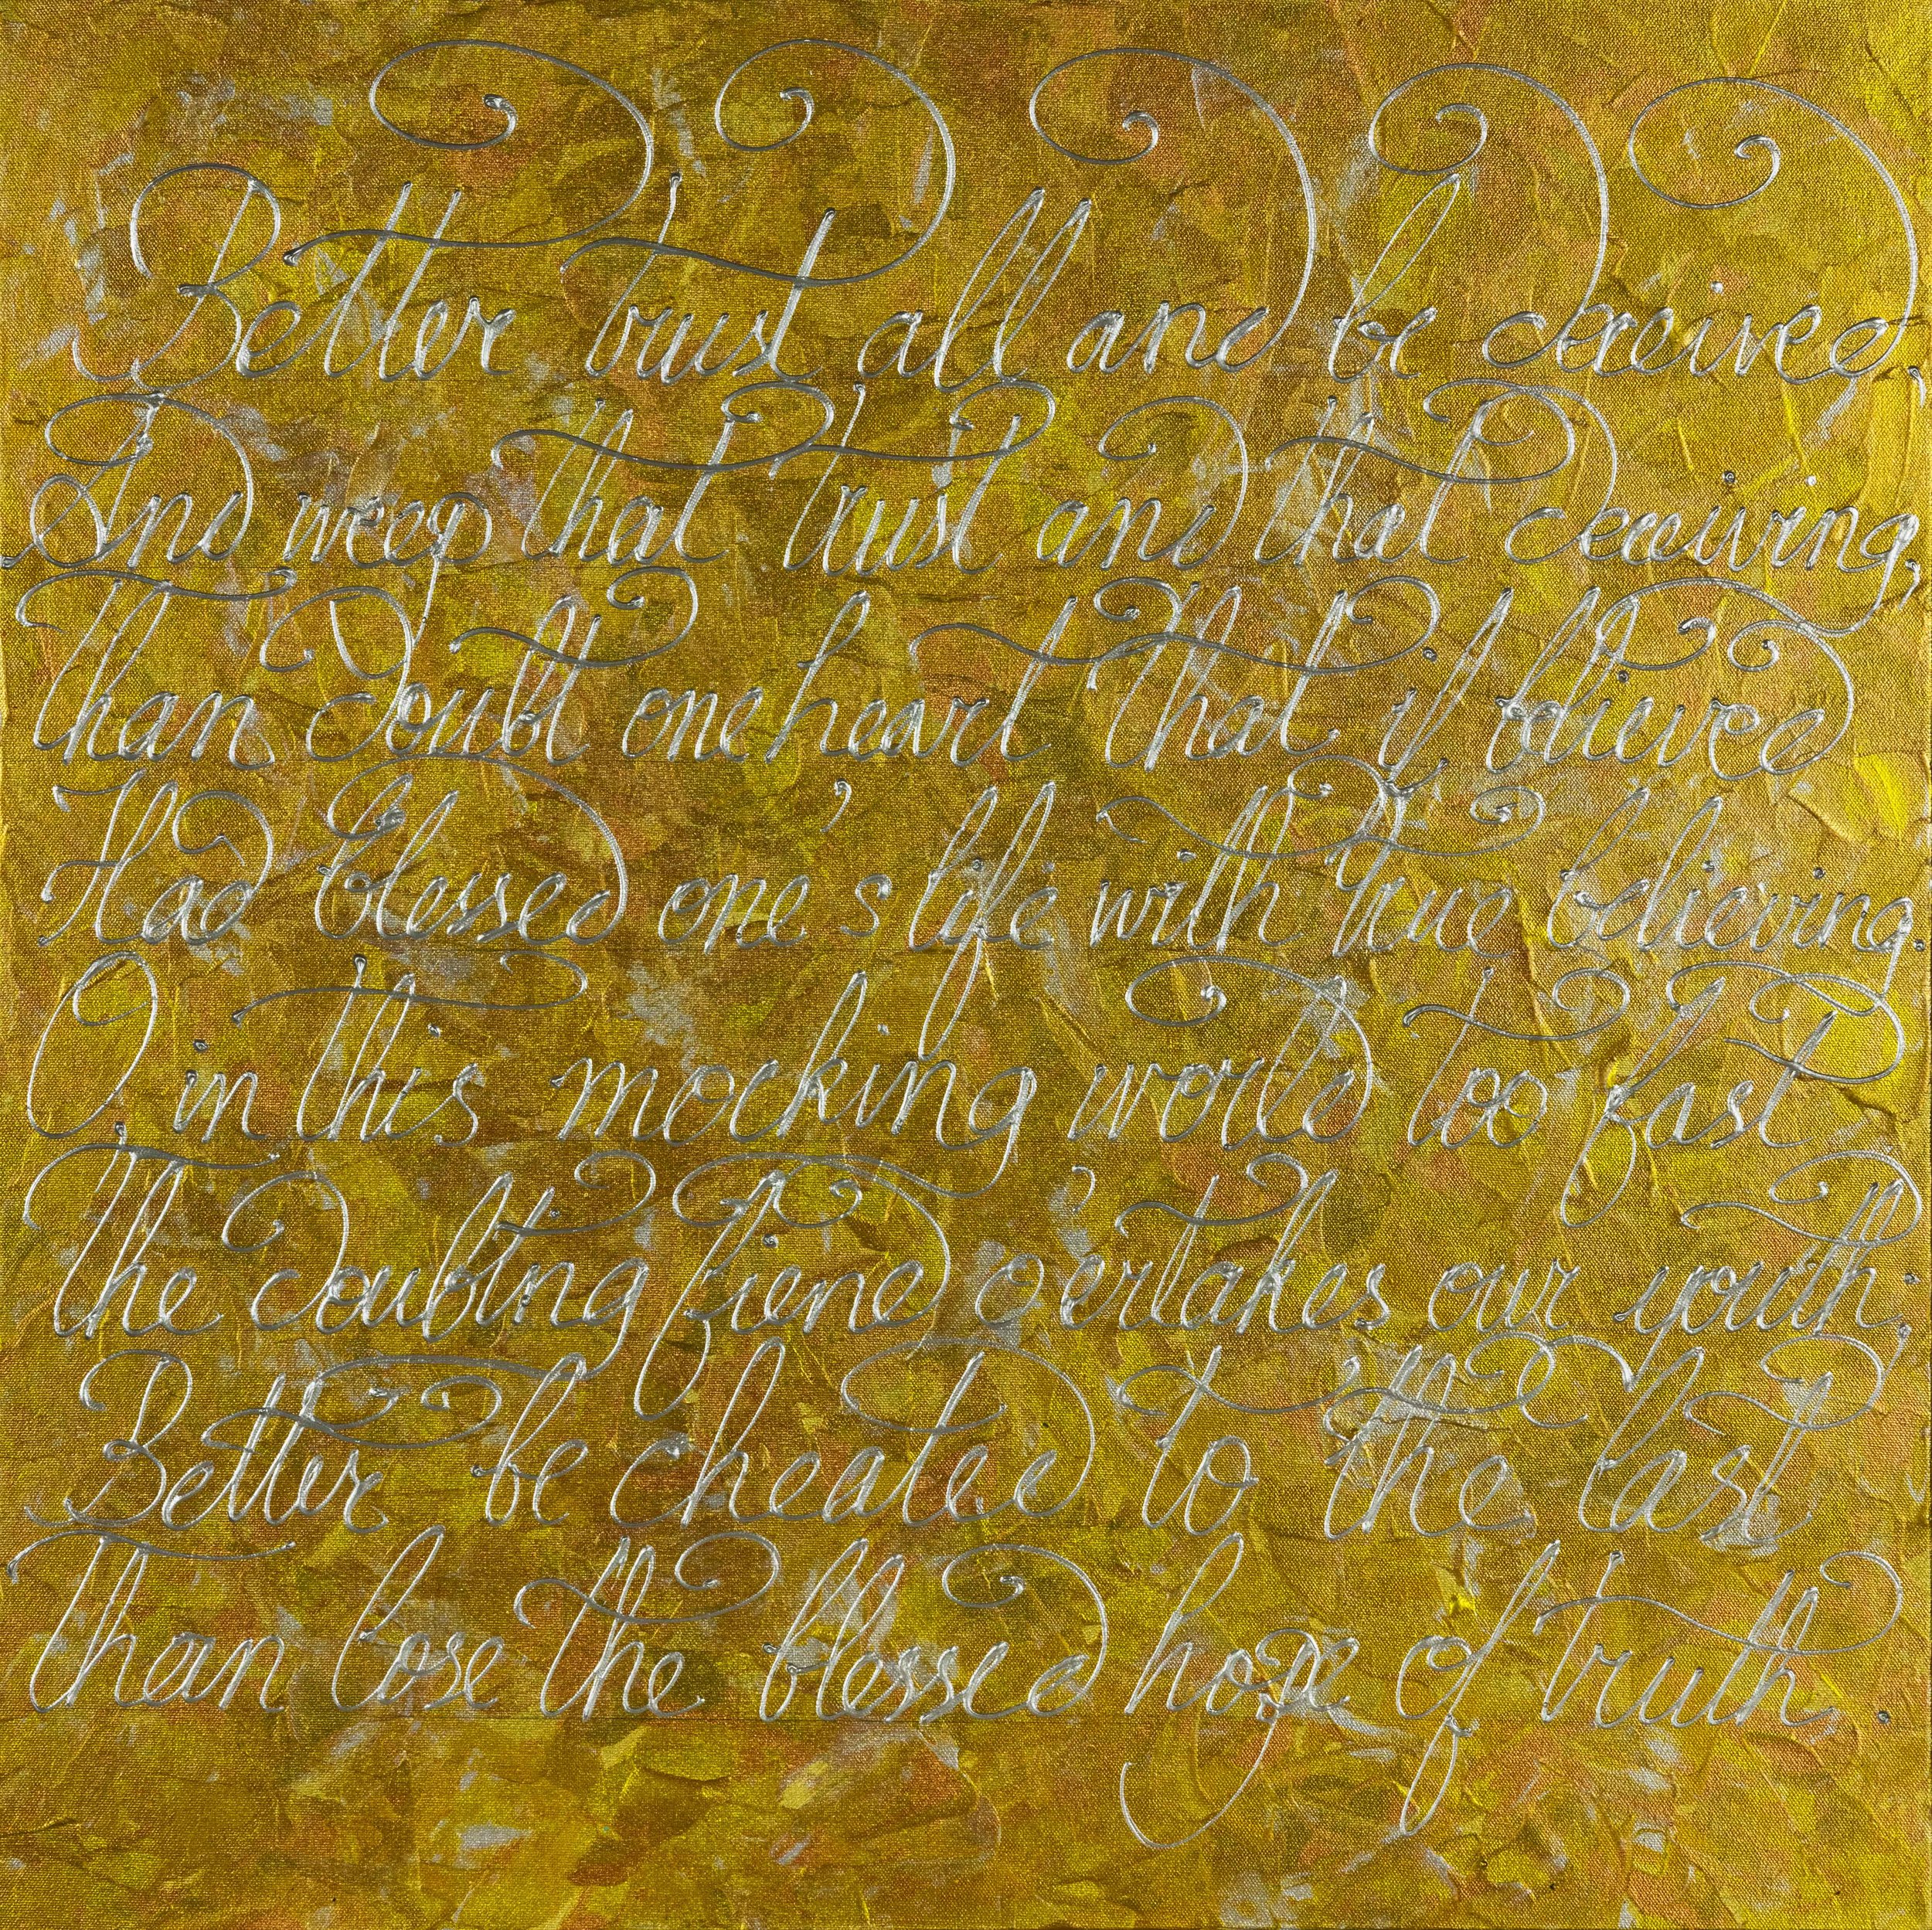 Better trust all and be deceived,
And weep that trust and that deceiving,
Than doubt one heart that if believed
Had blessed one's life with true believing.
O in this mocking world too fast
The doubting fiend o'ertakes our youth;
Better be cheated to the last
Than lose the blessed hope of truth.